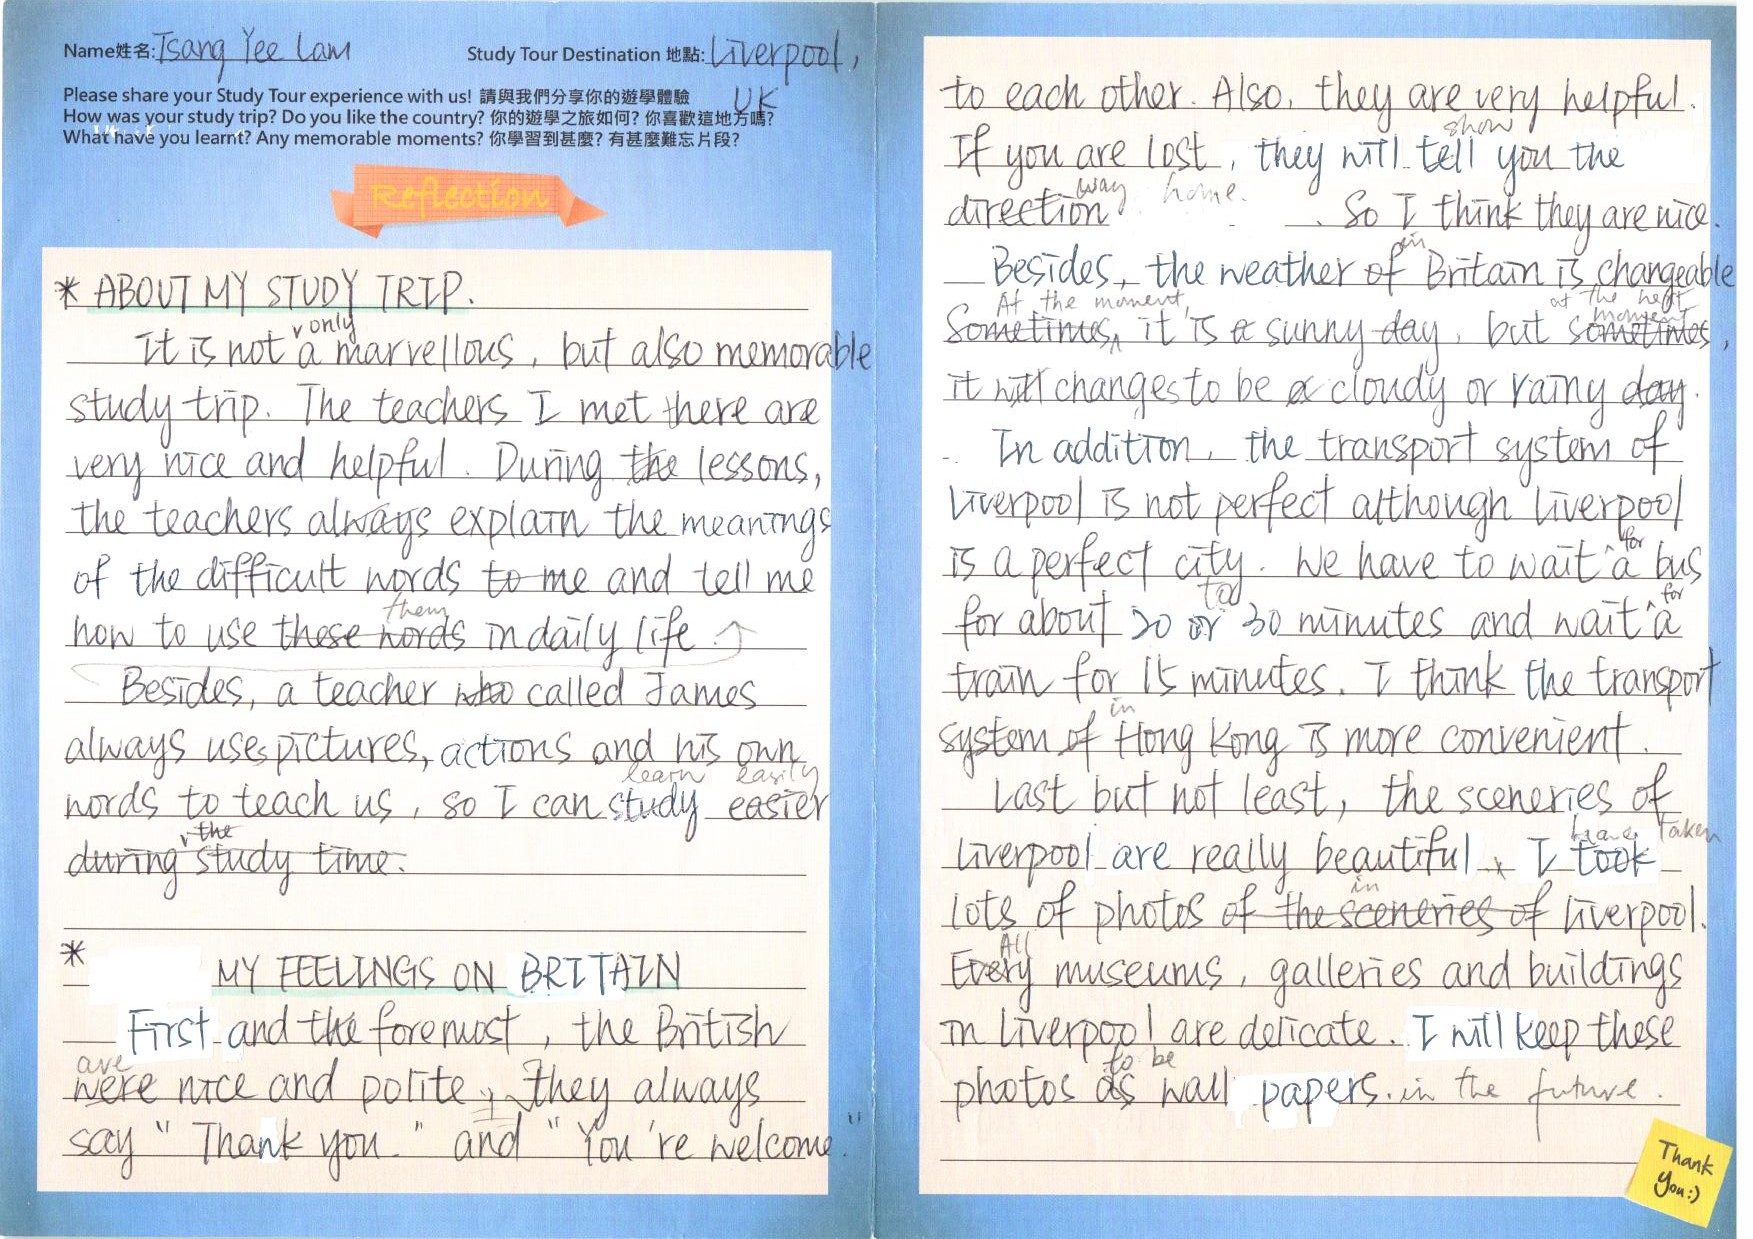 Name姓名: Tsang Yee Lam Study Tour Destination 地點: Liverpool, UK
Please share your Study Tour experience with us! 請與我們分享你的遊學體驗
How was your study trip? Do you like the country? 你的遊學之旅如何? 你喜歡這地方嗎?
What have you learnt? Any memorable moments? 你學習到甚麼? 有甚麼難忘片段?
Reflection
* ABOUT MY STUDY TRIP.
only
It is not a marvellous, but also memorable
study trip. The teachers I met there are
very nice and helpful. During the lessons,
the teachers always explain the meanings
of the difficult words to me and tell me
them
how to use these words in daily life.
Besides, a teacher who called James
always uses pictures, actions and his own
learn easily
words to teach us, so I can study easier
the
during study time.
* MY FEELINGS ON BRITAIN
First and the foremost, the British
are
were nice and polite, they always
say "Thank you." and "You're welcome."
to each other. Also, they are very helpful.
show
If you are lost, they will tell you the
way home.
direction. So I think they are nice.
in
Besides, the weather of Britain is changeable
At the moment, at the next moment
Sometimes, it is a sunny day, but sometimes,
it will changes to be a cloudy or rainy day.
In addition, the transport system of
Liverpool is not perfect although Liverpool
for
is a perfect city. We have to wait a bus
to for
for about 20 or 30 minutes and wait a
train for 15 minutes. I think the transport
in
system of Hong Kong is more convenient.
Last but not least, the sceneries of
have taken
Liverpool are really beautiful. I took
in
lots of photos of the sceneries of Liverpool.
All
Every museums, galleries and buildings
in Liverpool are delicate. I will keep these
to be
photos as wall papers. in the future.
Thank
You:)